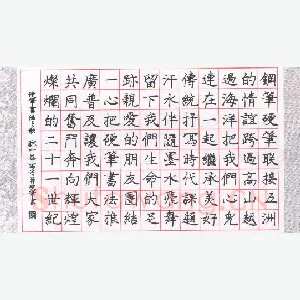 鋼筆硬筆聯接五洲
的情誼跨過高山越
過海洋把我們心兒
連在一起繼承美好
傳統抒寫時代新題
汗水伴隨墨水飛舞
留下我們生命的足
跡親愛的朋友團結
一心把硬筆書法推
廣普及讓我們大家
共同奮鬥奔向輝煌
燦爛的二十一世紀